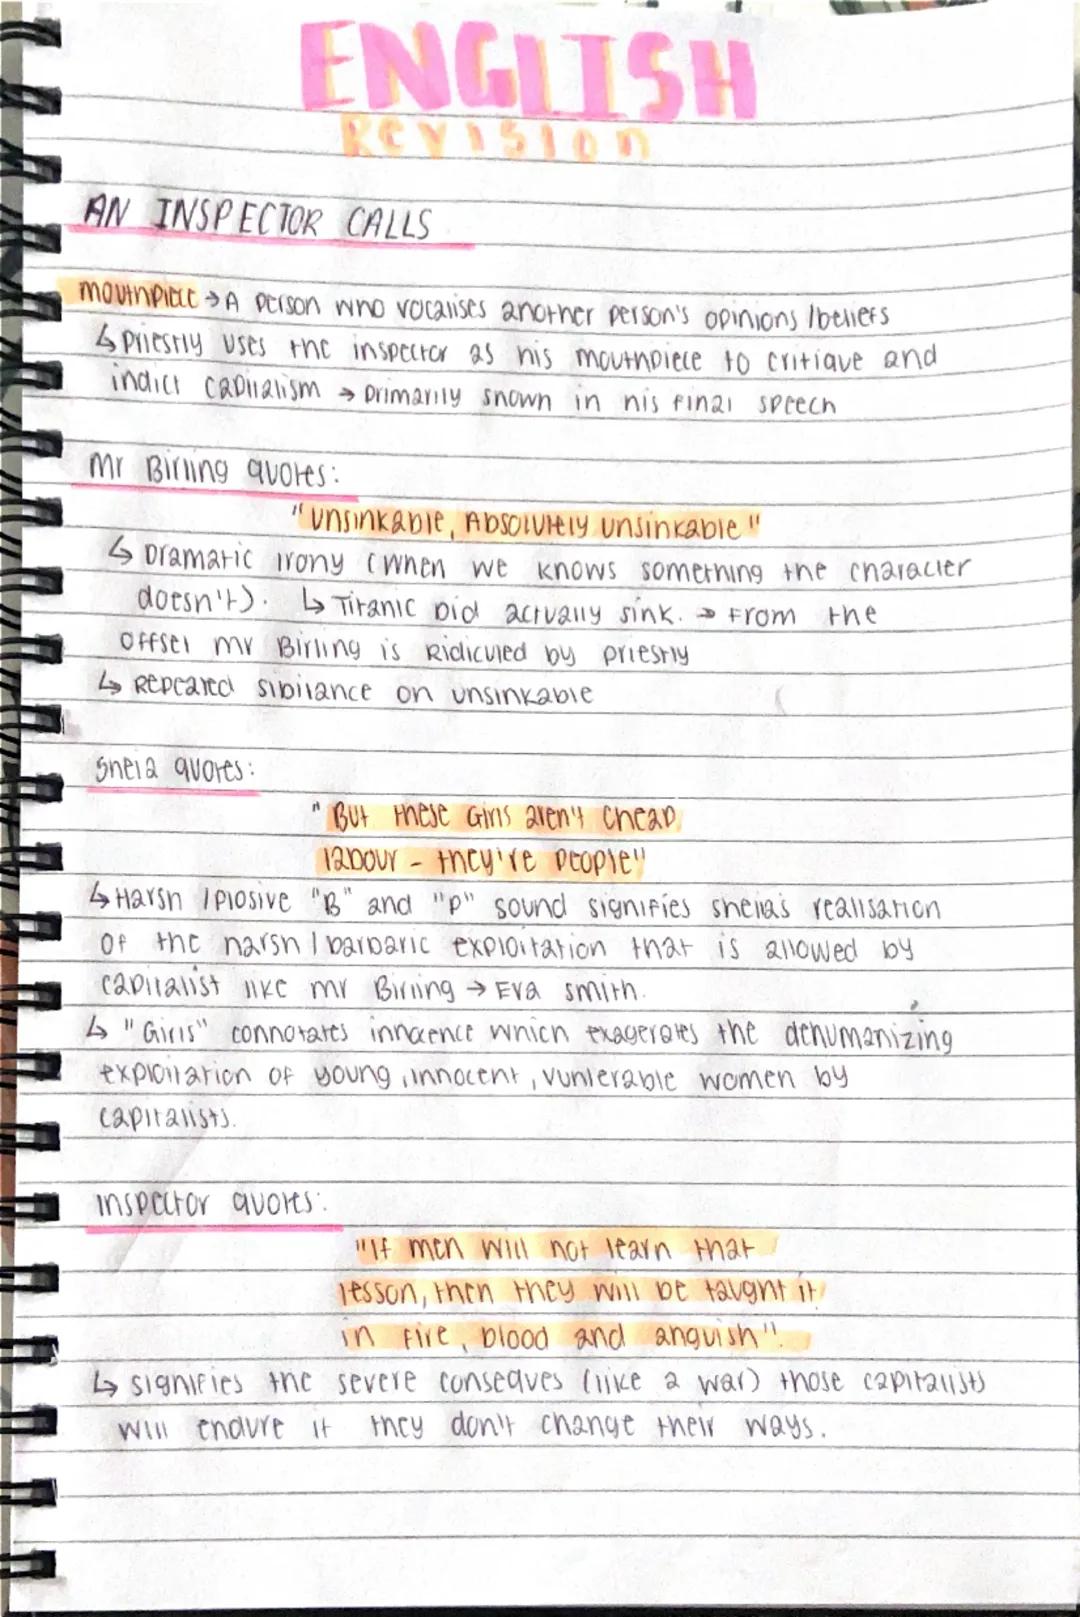 ENGLISH
Revision
AN INSPECTOR CALLS
mouthpiece → A person who vocalises another person's opinions / beliefs
↳ Priestly uses the inspector as his mouthpiece to critique and
indict capitalism → primarily shown in his final speech
Mr Birling quotes:
"unsinkable, Absolutely unsinkable"
↳ Dramatic irony (when we knows something the character
doesn't). ↳ Titanic Did actually sink. → From the
offset mr Birling is Ridiculed by priestly
↳ Repeated sibilance on unsinkable
Shela quotes:
"But these Girls aren't cheap
labour - they're people"
↳ Harsh / plosive "B" and "p" sound signifies shella's realisation
Of the harsh / barbaric exploitation that is allowed by
capitalist like mr Birling → Eva smith.
↳ "Girls" connotates innocence which exagerates the dehumanizing
exploitation of young, innocent, vunlerable women by
capitalists.
inspector quotes:
"If men will not learn that
lesson, then they will be taught it
in fire, blood and anguish".
↳ signifies the severe conseques (like a war) those capitalists
will endure if they don't change their ways.